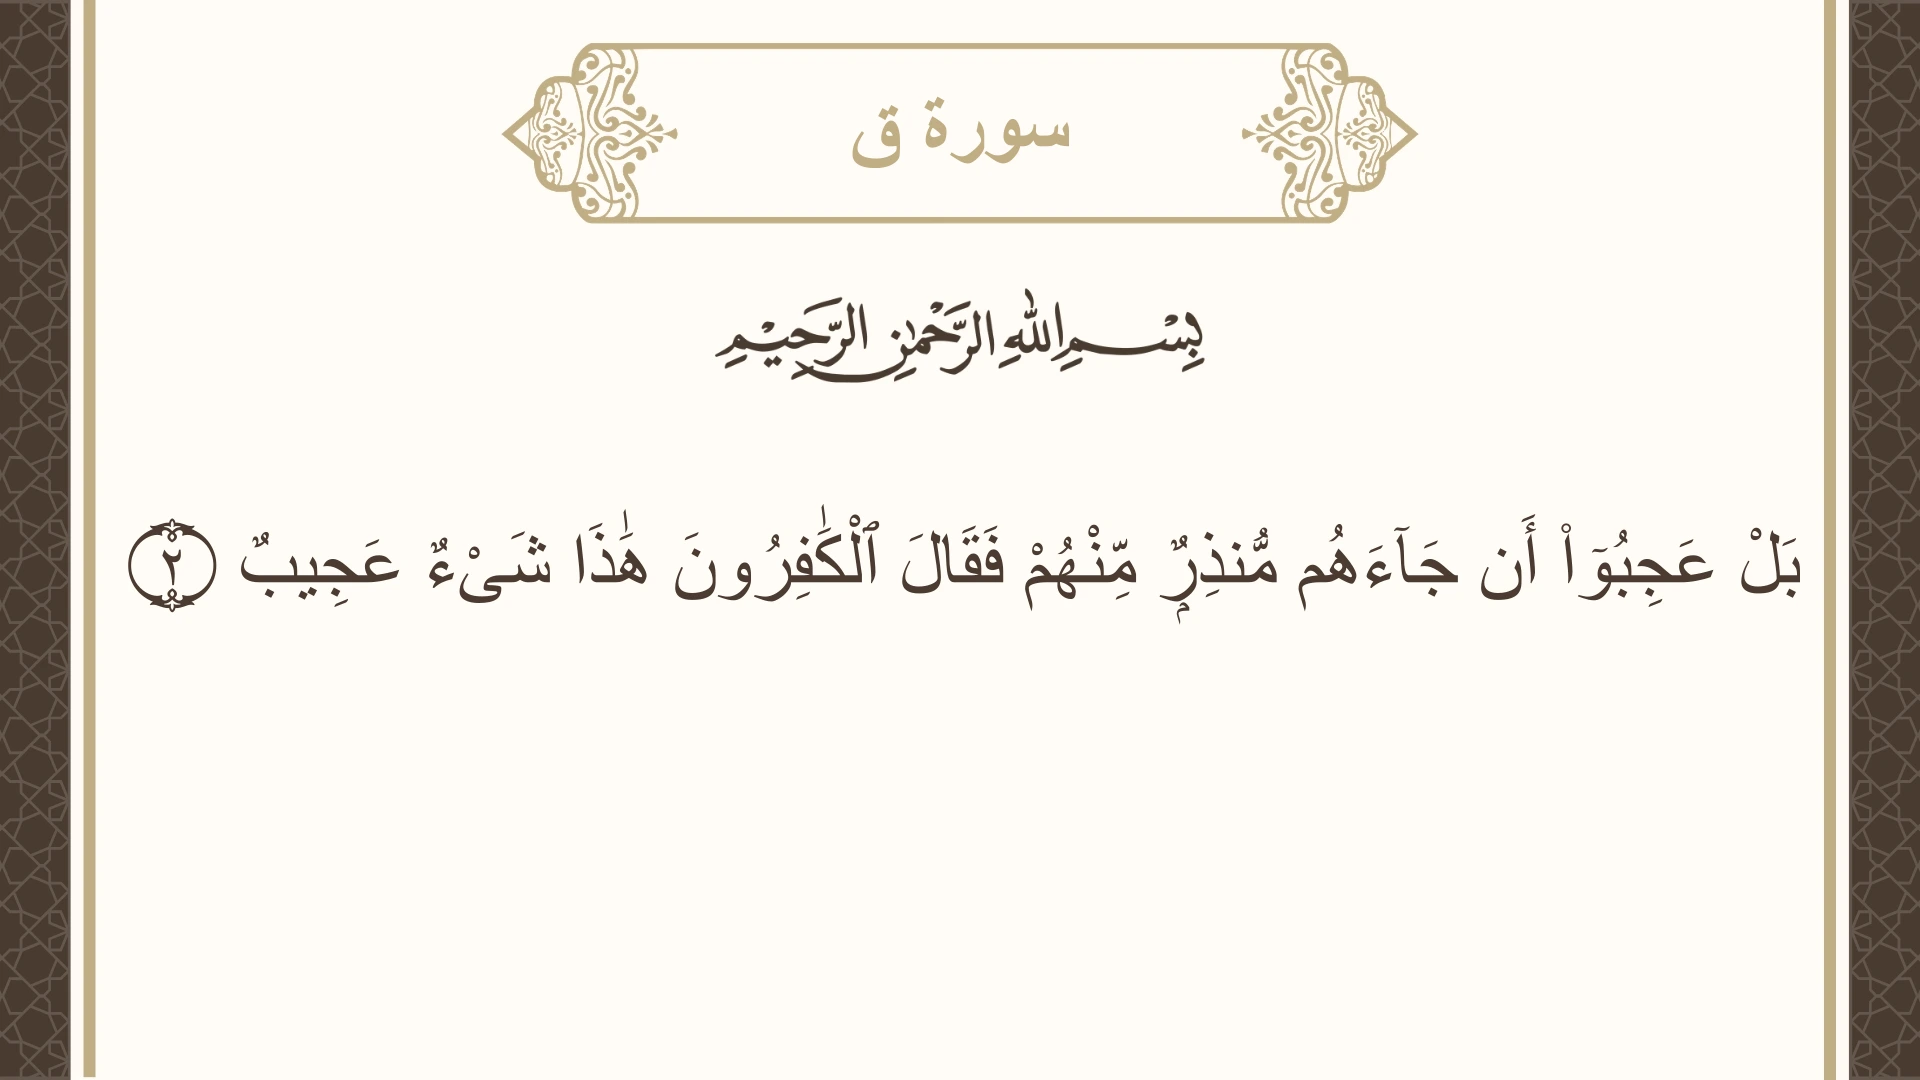 سورة ق
بِسْمِ اللهِ الرَّحْمٰنِ الرَّحِيْمِ
بَلْ عَجِبُوٓا۟ أَن جَآءَهُم مُّنذِرٌۭ مِّنْهُمْ فَقَالَ ٱلْكَٰفِرُونَ هَٰذَا شَىْءٌ عَجِيبٌ ٢